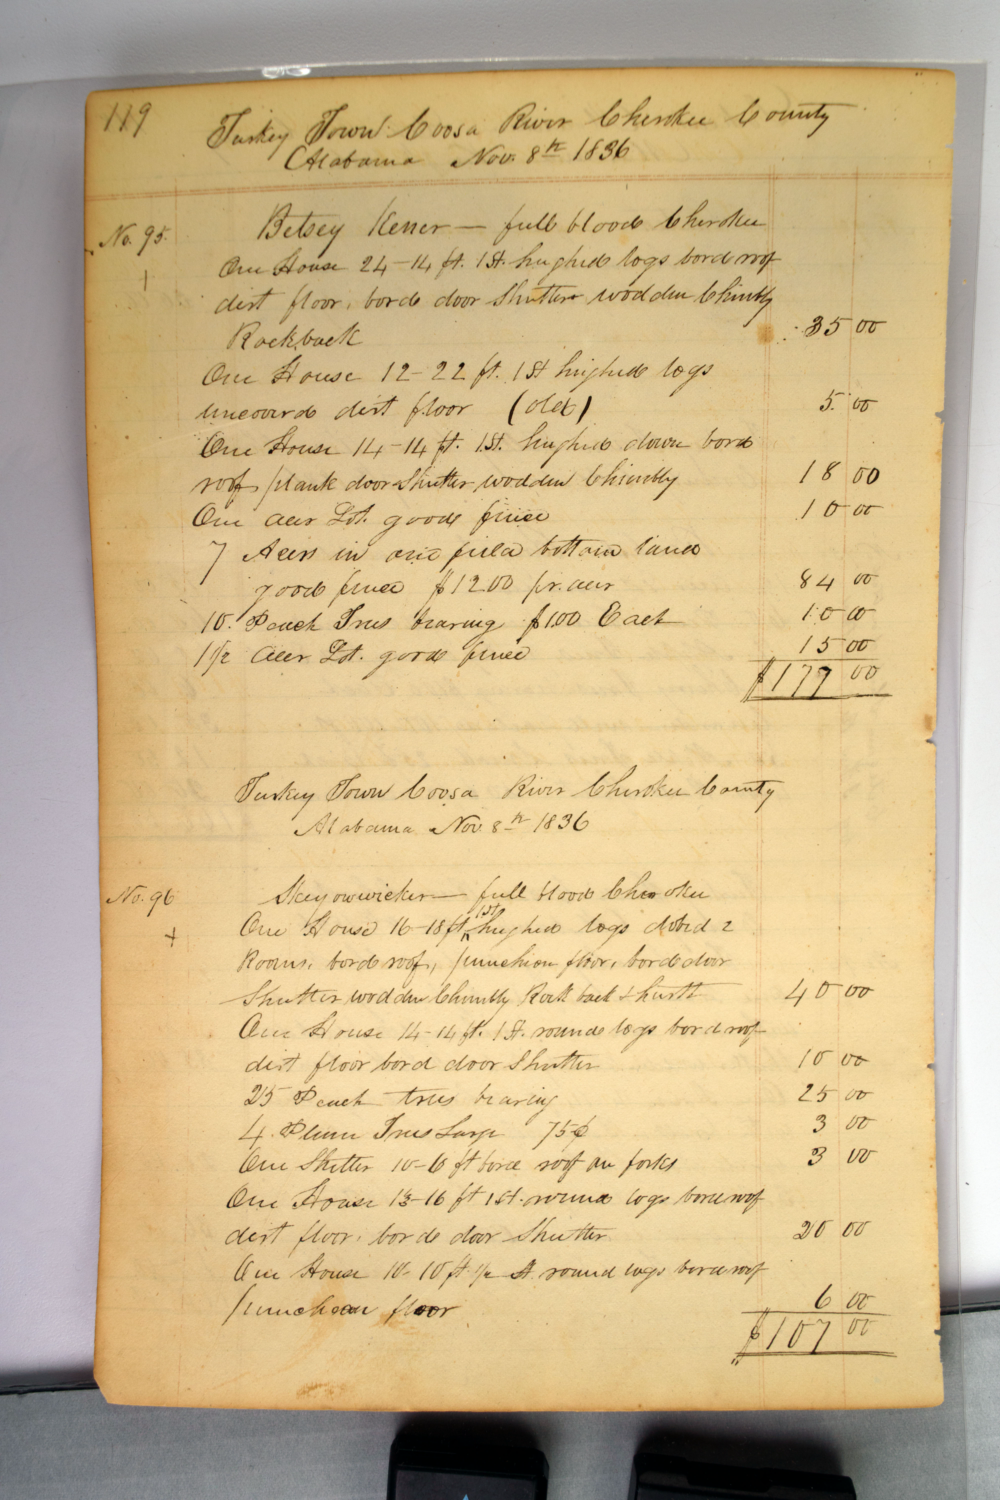 119
Turkey Town Coosa River Cherokee County
Alabama Nov. 8th 1836
No. 95 Betsey Kener — full blood Cherokee
One House 24-14 ft. 1 St. hughed logs bord roof
dirt floor, bord door Shutter wodden Chimbly
Rock back 35 00
One House 12-22 ft. 1 St hughed logs
uncoverd dirt floor (old) 5 00
One House 14-14 ft. 1 St. hughed down bord
roof, plank door Shutter, wodden Chimbly 18 00
One acer Lot. good fince 10 00
7 Acers in one field bottom land
good fince $12.00 pr. acer 84 00
10. Peach Trees bearing $1.00 Each 10 00
1 1/2 acer Lot. good fince 15 00
$177 00
Turkey Town Coosa River Cherokee County
Alabama Nov. 8th 1836
No. 96 Skeyowwicker — full blood Cherokee
+ One House 16-18 ft. 1 St. hughed logs dobed 2
Rooms, bord roof, puncheon floor, bord door
Shutter wodden Chimbly Rock back & hurth 40 00
One House 14-14 ft. 1 St. round logs bord roof
dirt floor bord door Shutter 10 00
25 Peach trees bearing 25 00
4. Plum Trees Large 75¢ 3 00
One Shelter 10-6 ft bord roof on forks 3 00
One House 13-16 ft 1 St. round logs bord roof
dirt floor, bord door Shutter 20 00
One House 10-10 ft 1/2 St. round logs bord roof
puncheon floor 6 00
$107 00